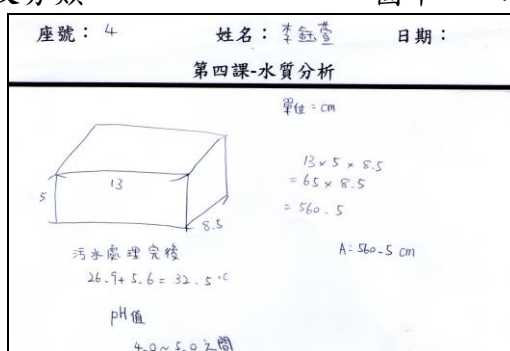 座號： 4 姓名： 李 萱 日期：
第四課-水質分析
單位：cm
13 × 5 × 8.5
= 65 × 8.5
= 560.5
5
13
8.5
A: 560.5 cm
污水處理完後
26.9 + 5.6 = 32.5 °C
pH值
4.0 ~ 5.0 之間